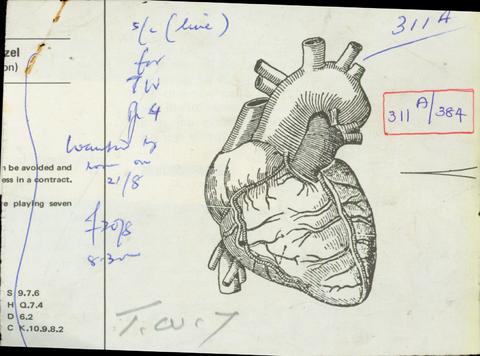 s/c (line)
for
TW
311 A
zel
on)
311 A/384
Wanted by
noon on
21/8
n be avoided and
ess in a contract.
re playing seven
8.30
S 9.7.6
H Q.7.4
D 6.2
C K.10.9.8.2